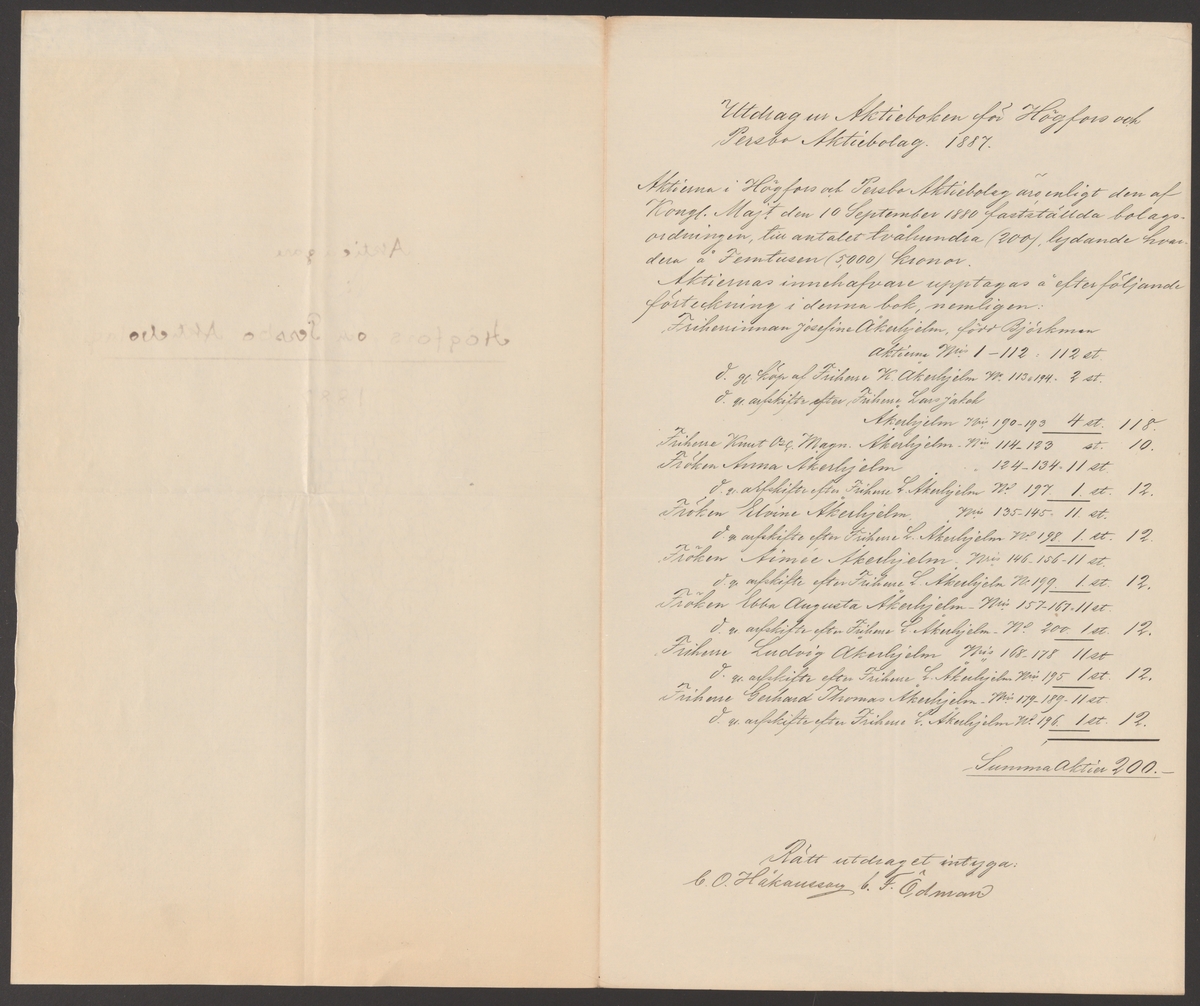 Utdrag ur Aktieboken för Högfors och
Persbo Aktiebolag. 1887.
Aktierna i Högfors och Persbo Aktiebolag äro enligt den af
Kongl. Majt. den 10 September 1880 fastställda bolags-
ordningen, till antalet tvåhundra (200), lydande hvar-
dera å Femtusen (5,000) Kronor.
Aktiernas innehafvare upptagas å efterföljande
förteckning i denna bok, nemligen:
Friherrinnan Josefine Åkerhjelm, född Björkman
Aktierna Nris 1-112. 112 st.
d. gl. köp af Friherre K. Åkerhjelm No. 113 o 194. 2 st.
d. gl. arfskifte efter Friherre Lars Jakob
Åkerhjelm Nris 190-193 4 st. 118.
Friherre Knut Magn. Åkerhjelm - Nris 114-123 st. 10.
Fröken Anna Åkerhjelm " 124-134-11 st.
d. gl. arfskifte efter Friherre L. Åkerhjelm No. 197 1 st. 12.
Fröken Elvine Åkerhjelm. Nris 135-145. 11 st.
d. gl. arfskifte efter Friherre L. Åkerhjelm No 198 1. st. 12.
Fröken Aimée Åkerhjelm. Nris 146-156-11 st.
d. gl. arfskifte efter Friherre L. Åkerhjelm No 199. 1 st. 12.
Fröken Ebba Augusta Åkerhjelm - Nris 157-167-11 st.
d. gl. arfskifte efter Friherre L. Åkerhjelm - No. 200 1 st. 12.
Friherre Ludvig Åkerhjelm Nris 168-178 11 st
d. gl. arfskifte efter Friherre L. Åkerhjelm Nris 195 1 st. 12.
Friherre Gerhard Thomas Åkerhjelm - Nris 179-189-11 st.
d. gl. arfskifte efter Friherre L. Åkerhjelm No. 196. 1 st. 12.
Summa Aktier 200.-
Rätt utdraget intyga:
C. O. Håkansson C. F. Ödman